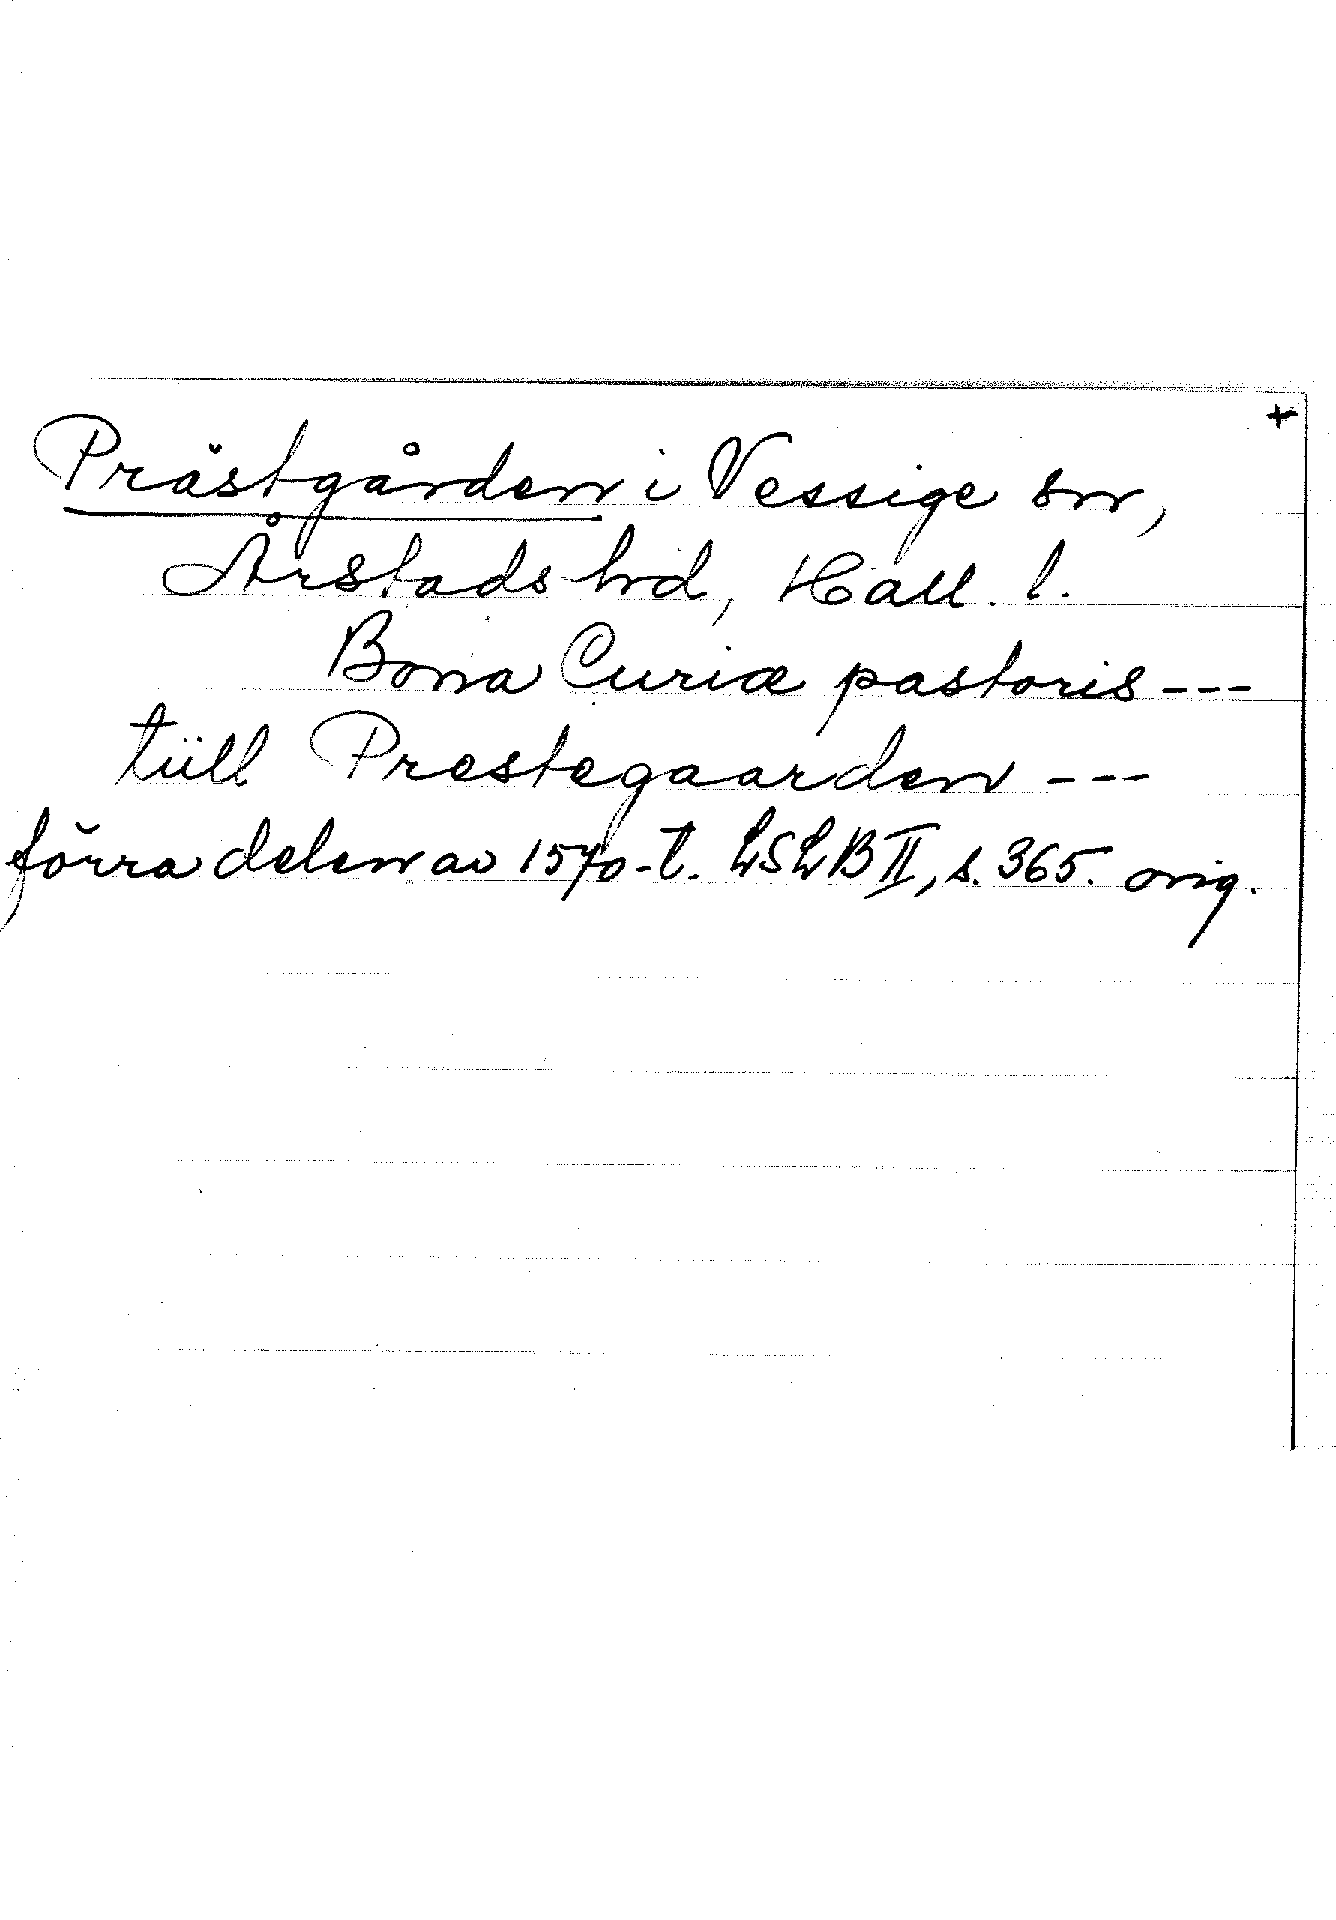 +
Prästgården i Vessige sn,
Årstads hd, Hall. l.
Bona Curiæ pastoris ---
tiill Prestegaarden ---
förra delen av 1570-t. LSLB II, s. 365. orig.